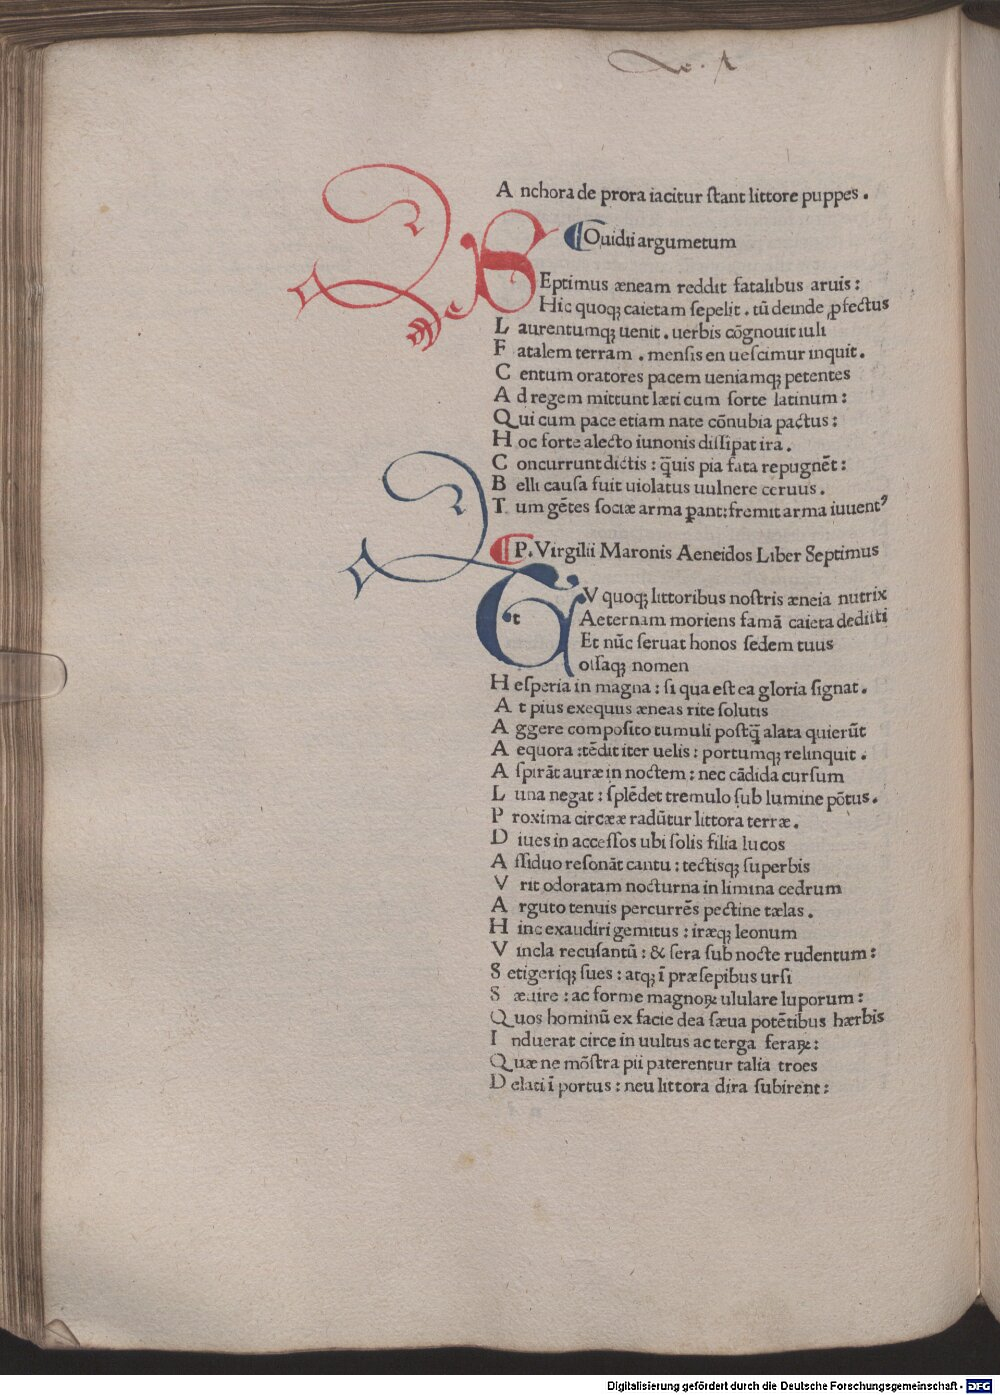 A nchora de prora iacitur ſtant littore puppes .
Ouidii argumetum
SEptimus æneam reddit fatalibus aruis :
Hic quoqꝫ caietam ſepelit . tū deinde ꝓfectus
L aurentumqꝫ uenit . uerbis cōgnouit iuli
F atalem terram . menſis en ueſcimur inquit .
C entum oratores pacem ueniamqꝫ petentes
A d regem mittunt læti cum ſorte latinum :
Q ui cum pace etiam nate cōnubia pactus :
H oc forte alecto iunonis diſſipat ira .
C oncurrunt dictis : q̄uis pia fata repugnēt :
B elli cauſa fuit uiolatus uulnere ceruus .
T um gētes ſociæ arma ꝑant: fremit arma iuuentꝰ
P. Virgilii Maronis Aeneidos Liber Septimus
tV quoqꝫ littoribus noſtris æneia nutrix
Aeternam moriens famā caieta dediſti
Et nūc ſeruat honos ſedem tuus
oſſaqꝫ nomen
H eſperia in magna : ſi qua eſt ea gloria ſignat .
A t pius exequiis æneas rite ſolutis
A ggere compoſito tumuli poſtq̄ alata quierūt
A equora : tēdit iter uelis : portumqꝫ relinquit .
A ſpirāt auræ in noctem : nec cādida curſum
L una negat : ſplēdet tremulo ſub lumine pōtus .
P roxima circææ radūtur littora terræ .
D iues in acceſſos ubi ſolis filia lucos
A ſſiduo reſonāt cantu : tectisqꝫ ſuperbis
V rit odoratam nocturna in limina cedrum
A rguto tenuis percurrēs pectine tælas .
H inc exaudiri gemitus : iræqꝫ leonum
V incla recuſantū : & ſera ſub nocte rudentum :
S etigeriqꝫ ſues : atqꝫ ī præſepibus urſi
S æuire : ac forme magnoꝝ ululare luporum :
Q uos hominū ex facie dea ſæua potētibus hærbis
I nduerat circe in uultus ac terga feraꝝ :
Q uæ ne mōſtra pii paterentur talia troes
D elati ī portus : neu littora dira ſubirent :
Digitalisierung gefördert durch die Deutsche Forschungsgemeinschaft - DFG